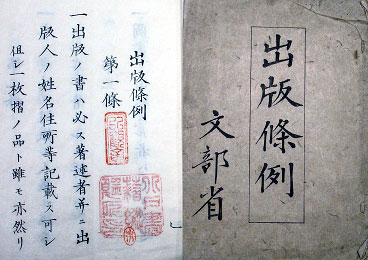 出版條例
文部省
出版條例
第一條
一出版ノ書ハ必ス著述者并ニ出
版人ノ姓名住所等記載ス可シ
但シ一枚摺ノ品ト雖モ亦然リ